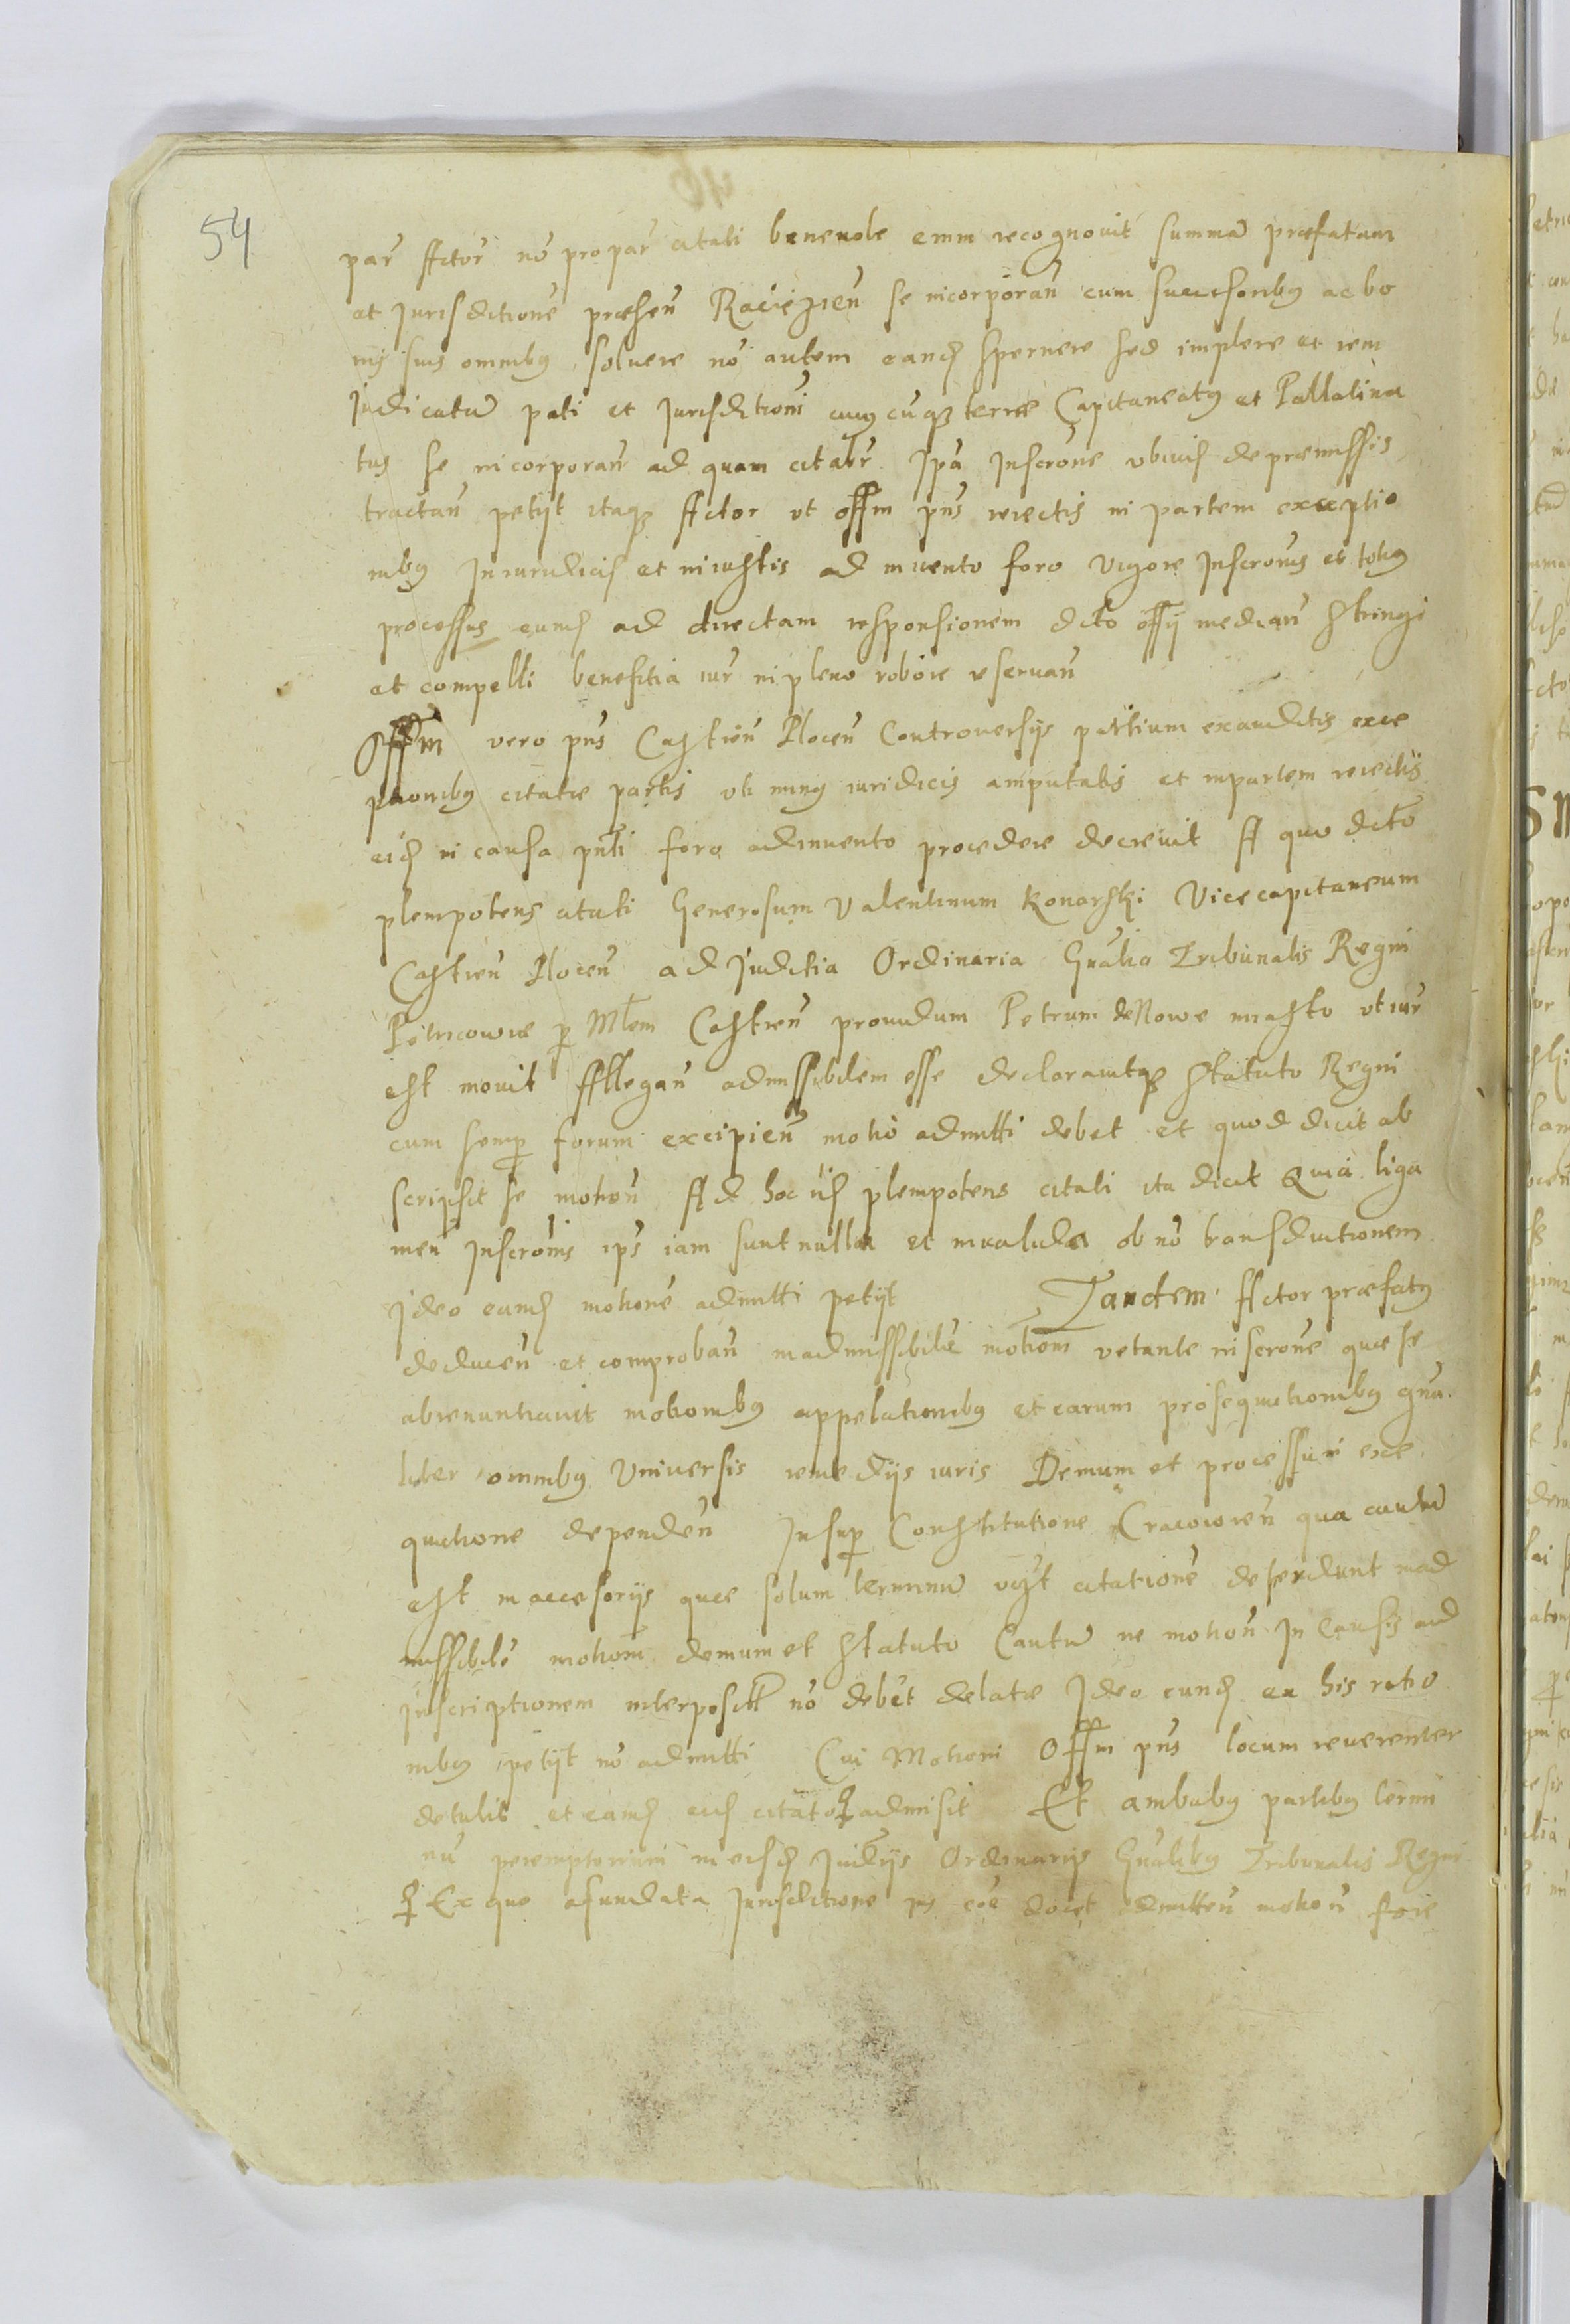 54
par Actor nō propar citati beneuole enim recognouit summā præfatam
et Jurisditione præsen̄ Raciezien̄ se incorporan̄ cum successoribꝰ ac bo
nis suis omnibꝰ soluere nō autem eandē spernere sed implere et rem
Judicatā pati et Jurisditioni cuiꝰcūqꝫ terræ Capitaneatꝰ et Pallatina
tus se incorporan̄ ad quam citatr Ipā Inscrōne ubiuis de præmissis
tractan̄ petyt itaqꝫ Actor ut offm pn̄s reiectis in partem exceptio
nibꝰ Iniuridicis et iniustis adinuento foro vigore Inscronis et totiꝰ
processus eund ad directam responsionem dcto offy median̄ stringi
et compelli benefitia iur in pleno robore reseruan̄
Offm vero pn̄s Castren̄ Plocen̄ Controuersijs partium exauditis exce
ptionibꝰ citatæ partis uti minꝰ iuridicis amputatis et in partem reiectis
eisd in causa pn̄ti foro adinuento procedere decreuit A quo dicto
plempotens citati Generosum Valentinum Konarski Vicecapitaneum
Castren̄ Plocen̄ ad Juditia Ordinaria Gn̄alia Tribunalis Regni
Petricouiæ p Mlem Castren̄ prouidum Petrum de Nowe miasto ut iur
est mouit Allegan̄ admissibilem esse declarauitqꝫ statuto Regni
cum semp forum excipien̄ motio admitti debet et quod dicit ab
scripsit se motion̄ Ad hoc iisd plempotens citati ita dicit Quia liga
men Inscronis ips iam sunt nulla et inualida ob nō transductionem
Ideo eand motionē admitti petyt Tandem Actor præfatꝰ
deducen̄ et comproban̄ inadmissibilē motionē vetante inscrōne quæ se
abrenuntiauit motionibꝰ appelationibꝰ et earum prosequutionibꝰ gn̄a
liter omnibꝰ Vniuersis remedijs iuris Demum et processu in exe
quutione dependen̄ Insup Constitutione Cracouien̄ qua cautū
est in accesorijs quæ solum terminū vqt citationē defendunt inad
missibilē motionē demum et statuto Cautū ne motion̄ In Causis ad
Inscriptionem interpositā nō debet delatæ Ideo eund ex his ratio
nibꝰ petyt nō admitti Cui Motioni Offm pn̄s locum reuerenter
detulit et eand eid citato admisit Et ambabꝰ partibꝰ termi
nū peremptorium in eisd Juditijs Ordinarijs Gn̄alibꝰ Tribunalis Regni
Ex quo afundata Jurisditione docet admitten̄ motion̄